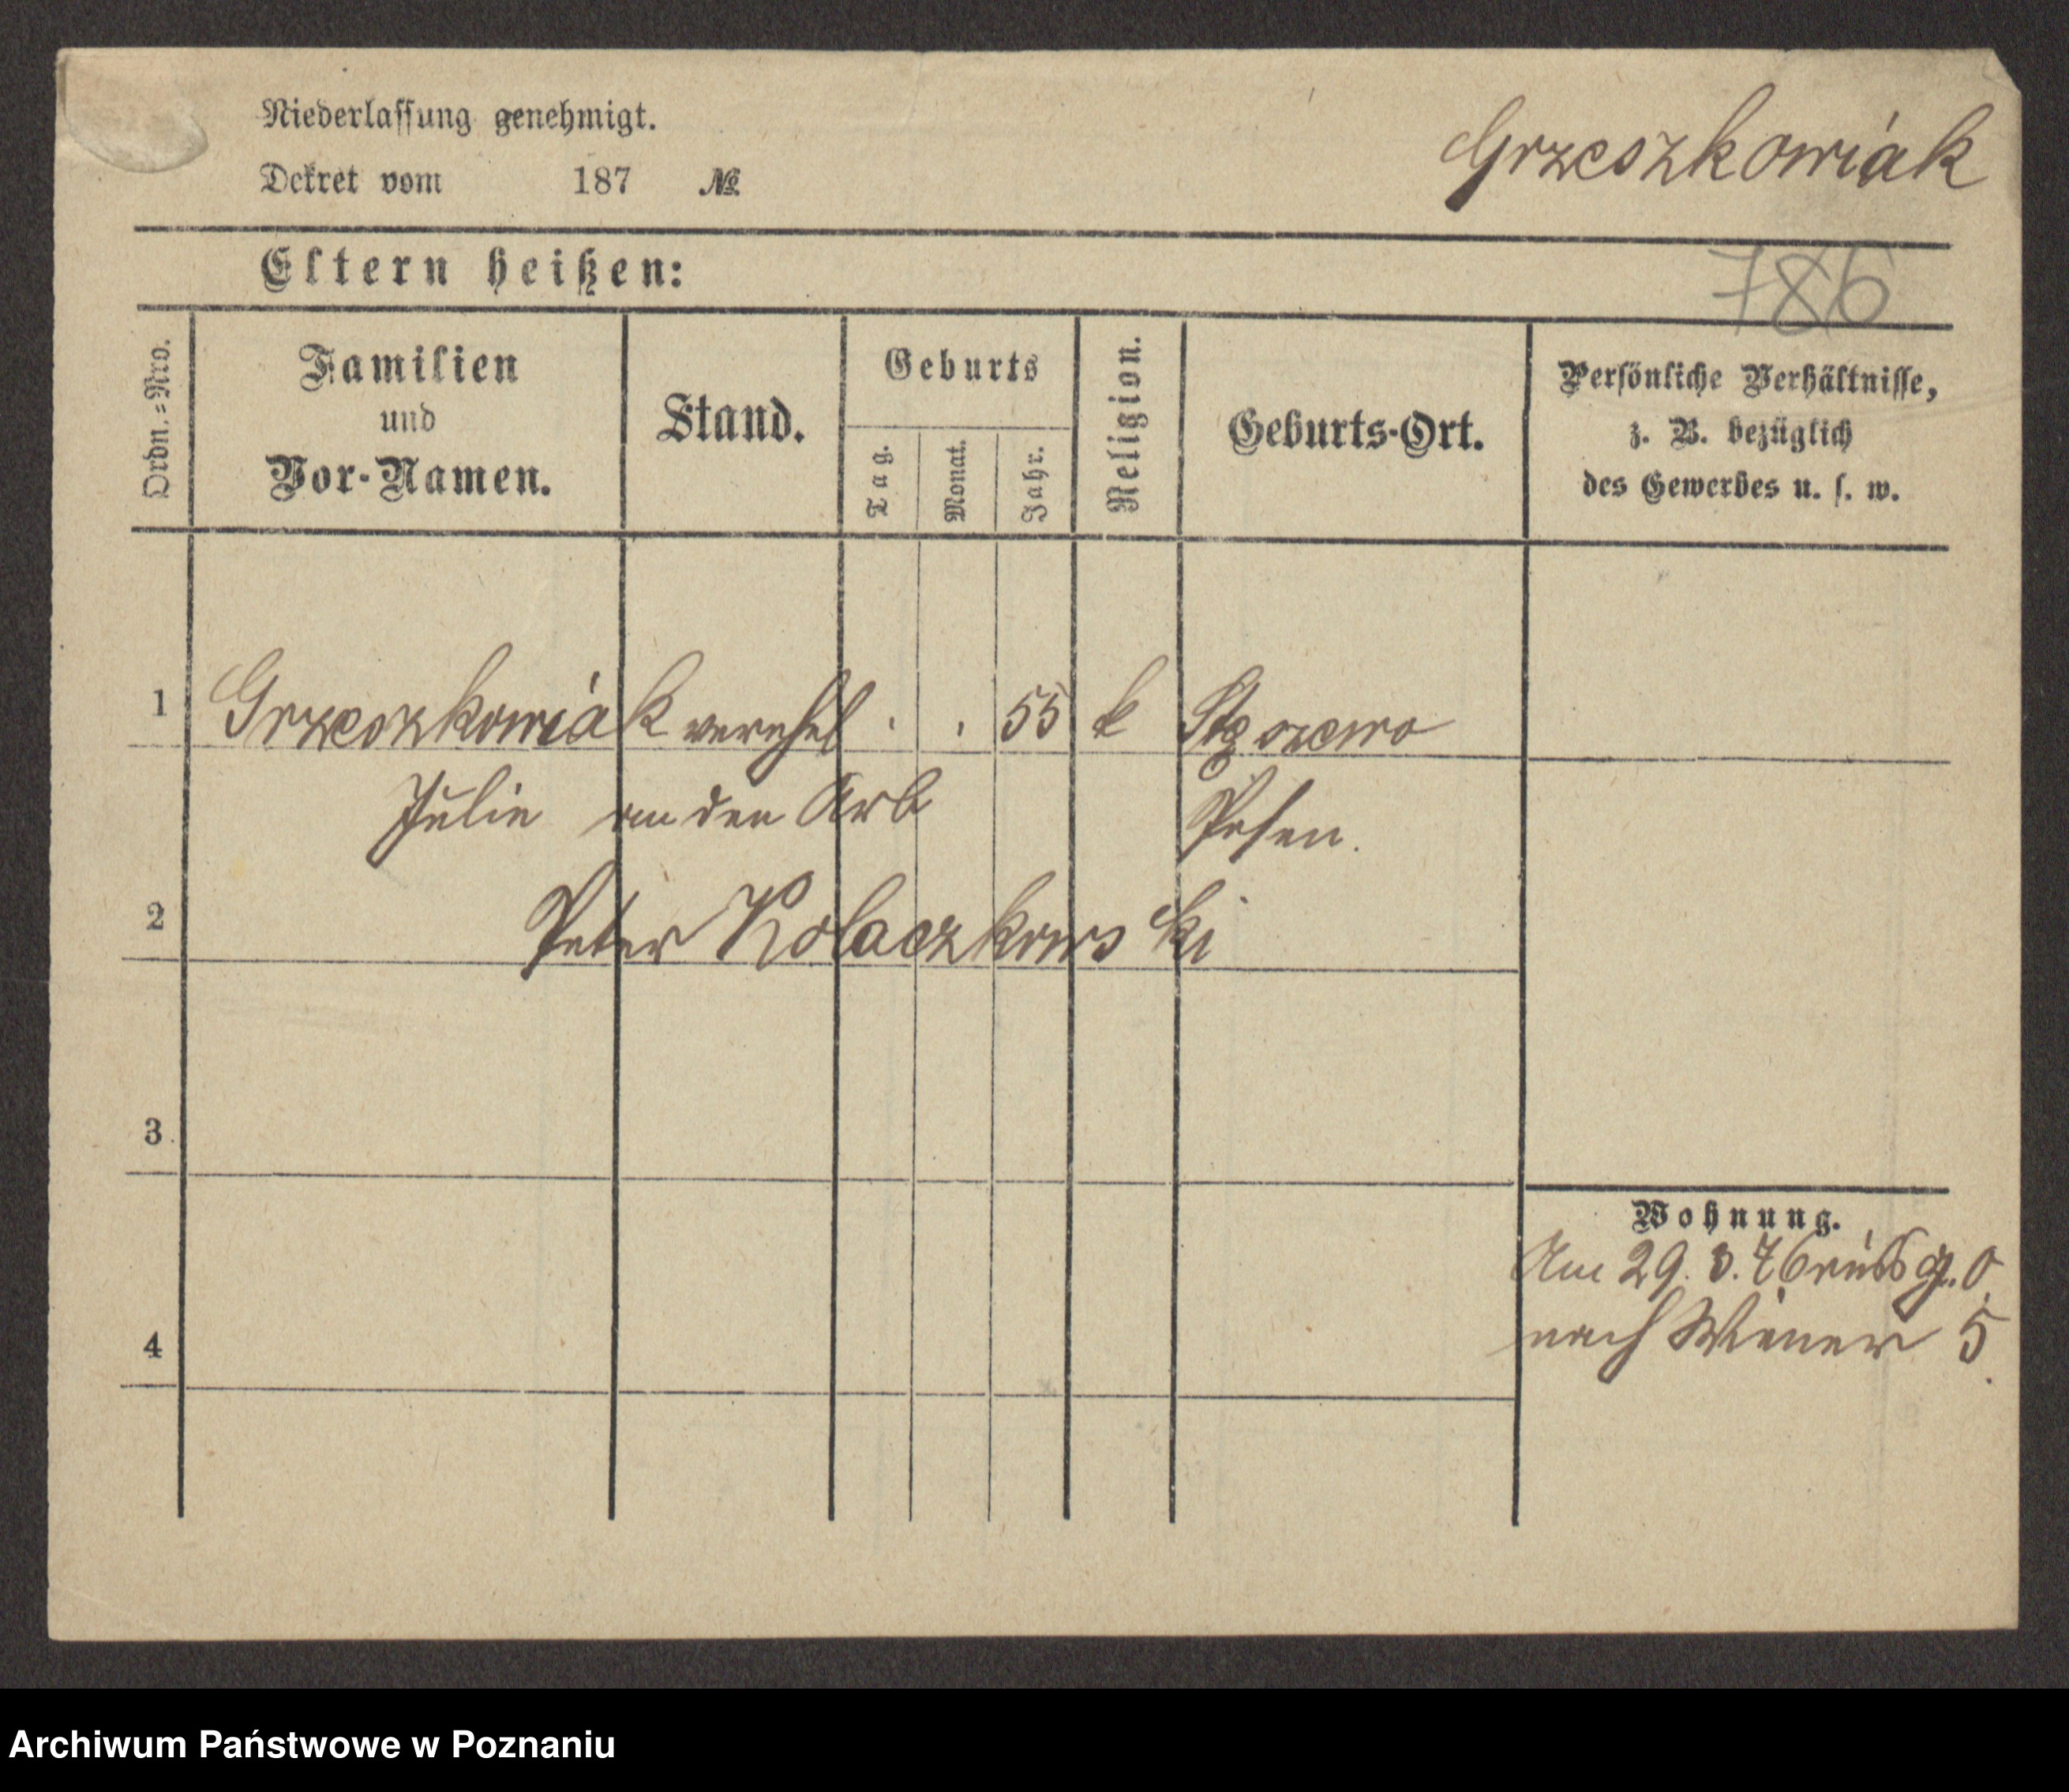 Niederlassung genehmigt.
Grzeszkowiak
Dekret vom 187 №
Eltern heißen:
786
Ordn.=Nro.
Familien
und
Vor-Namen.
Stand.
Geburts
Tag.
Monat.
Jahr.
Religion.
Geburts-Ort.
Persönliche Verhältnisse,
z. B. bezüglich
des Gewerbes u. s. w.
1 Grzeszkowiak verehel . . 55 k
Julie an den Arb Posen.
2 Peter Kolaczkowski
3
4
Wohnung.
Am 29. 3. 76
nach Wiener 5
Archiwum Państwowe w Poznaniu